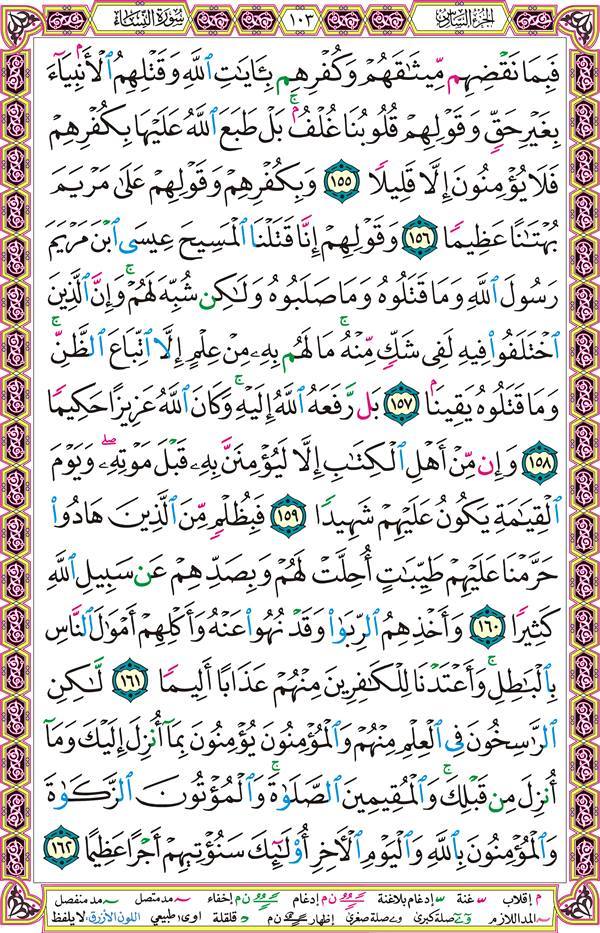 سُورَةُ النِّسَاءِ ١٠٣ الجُزءُ السَّادِسُ
فَبِمَا نَقْضِهِم مِّيثَٰقَهُمْ وَكُفْرِهِم بِـَٔايَٰتِ ٱللَّهِ وَقَتْلِهِمُ ٱلْأَنۢبِيَآءَ
بِغَيْرِ حَقٍّ وَقَوْلِهِمْ قُلُوبُنَا غُلْفٌۢ ۚ بَلْ طَبَعَ ٱللَّهُ عَلَيْهَا بِكُفْرِهِمْ
فَلَا يُؤْمِنُونَ إِلَّا قَلِيلًا ١٥٥ وَبِكُفْرِهِمْ وَقَوْلِهِمْ عَلَىٰ مَرْيَمَ
بُهْتَٰنًا عَظِيمًا ١٥٦ وَقَوْلِهِمْ إِنَّا قَتَلْنَا ٱلْمَسِيحَ عِيسَى ٱبْنَ مَرْيَمَ
رَسُولَ ٱللَّهِ وَمَا قَتَلُوهُ وَمَا صَلَبُوهُ وَلَٰكِن شُبِّهَ لَهُمْ ۚ وَإِنَّ ٱلَّذِينَ
ٱخْتَلَفُوا۟ فِيهِ لَفِى شَكٍّ مِّنْهُ ۚ مَا لَهُم بِهِۦ مِنْ عِلْمٍ إِلَّا ٱتِّبَاعَ ٱلظَّنِّ ۚ
وَمَا قَتَلُوهُ يَقِينًۢا ١٥٧ بَل رَّفَعَهُ ٱللَّهُ إِلَيْهِ ۚ وَكَانَ ٱللَّهُ عَزِيزًا حَكِيمًا
١٥٨ وَإِن مِّنْ أَهْلِ ٱلْكِتَٰبِ إِلَّا لَيُؤْمِنَنَّ بِهِۦ قَبْلَ مَوْتِهِۦ ۖ وَيَوْمَ
ٱلْقِيَٰمَةِ يَكُونُ عَلَيْهِمْ شَهِيدًا ١٥٩ فَبِظُلْمٍ مِّنَ ٱلَّذِينَ هَادُوا۟
حَرَّمْنَا عَلَيْهِمْ طَيِّبَٰتٍ أُحِلَّتْ لَهُمْ وَبِصَدِّهِمْ عَن سَبِيلِ ٱللَّهِ
كَثِيرًا ١٦٠ وَأَخْذِهِمُ ٱلرِّبَوٰا۟ وَقَدْ نُهُوا۟ عَنْهُ وَأَكْلِهِمْ أَمْوَٰلَ ٱلنَّاسِ
بِٱلْبَٰطِلِ ۚ وَأَعْتَدْنَا لِلْكَٰفِرِينَ مِنْهُمْ عَذَابًا أَلِيمًا ١٦١ لَّٰكِنِ
ٱلرَّٰسِخُونَ فِى ٱلْعِلْمِ مِنْهُمْ وَٱلْمُؤْمِنُونَ يُؤْمِنُونَ بِمَآ أُنزِلَ إِلَيْكَ وَمَآ
أُنزِلَ مِن قَبْلِكَ ۚ وَٱلْمُقِيمِينَ ٱلصَّلَوٰةَ ۚ وَٱلْمُؤْتُونَ ٱلزَّكَوٰةَ
وَٱلْمُؤْمِنُونَ بِٱللَّهِ وَٱلْيَوْمِ ٱلْءَاخِرِ أُو۟لَٰٓئِكَ سَنُؤْتِيهِمْ أَجْرًا عَظِيمًا ١٦٢
م إقلاب غنة إدغام بلاغنة ن م إدغام ن م إخفاء مد متصل مد منفصل
المد اللازم صلة كبرى صلة صغرى إظهار ن م قلقلة طبيعي اللون الأزرق: لا يلفظ